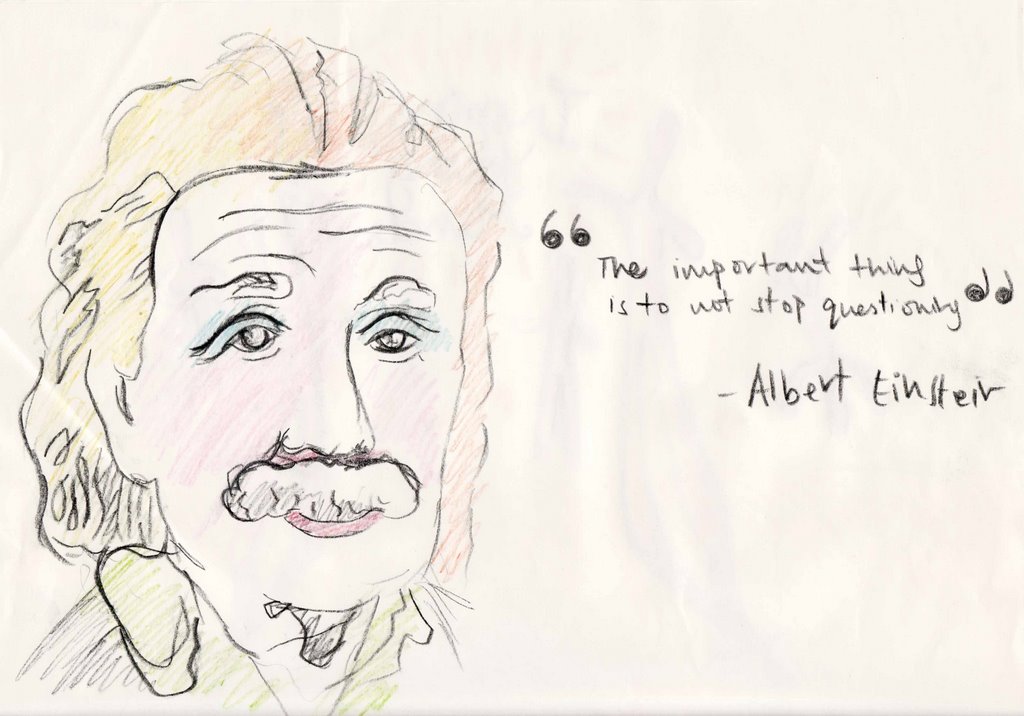 “ The important thing
is to not stop questioning ”
- Albert Einstein